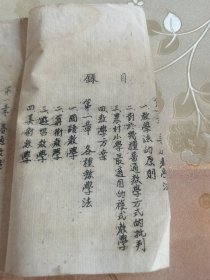 目錄
一、教學法的原則
二、對於幾種普通教學方式的批判
三、農村小學最適用的複式教學
四、教學方案
第一章 各種教學法
一、國語教學
二、算術教學
三、遊唱教學
四、美術教學